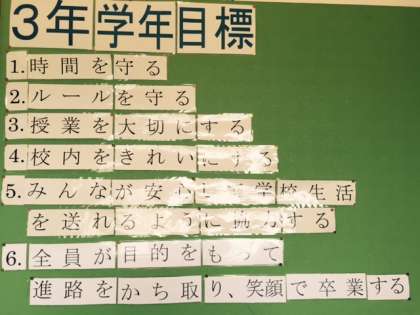 3年学年目標
1.時間を守る
2.ルールを守る
3.授業を大切にする
4.校内をきれいにする
5.みんなが安心して学校生活
を送れるように協力する
6.全員が目的をもって
進路をかち取り、笑顔で卒業する